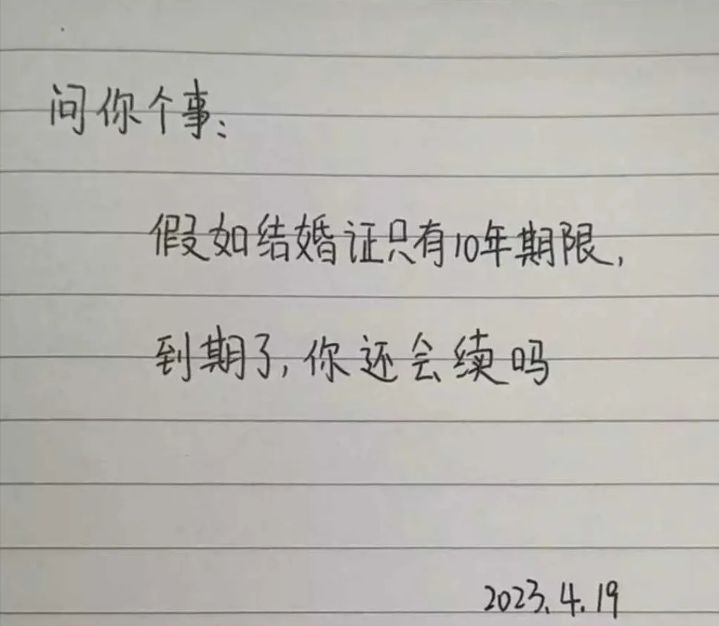 问你个事:
假如结婚证只有10年期限,
到期了,你还会续吗
2023.4.19